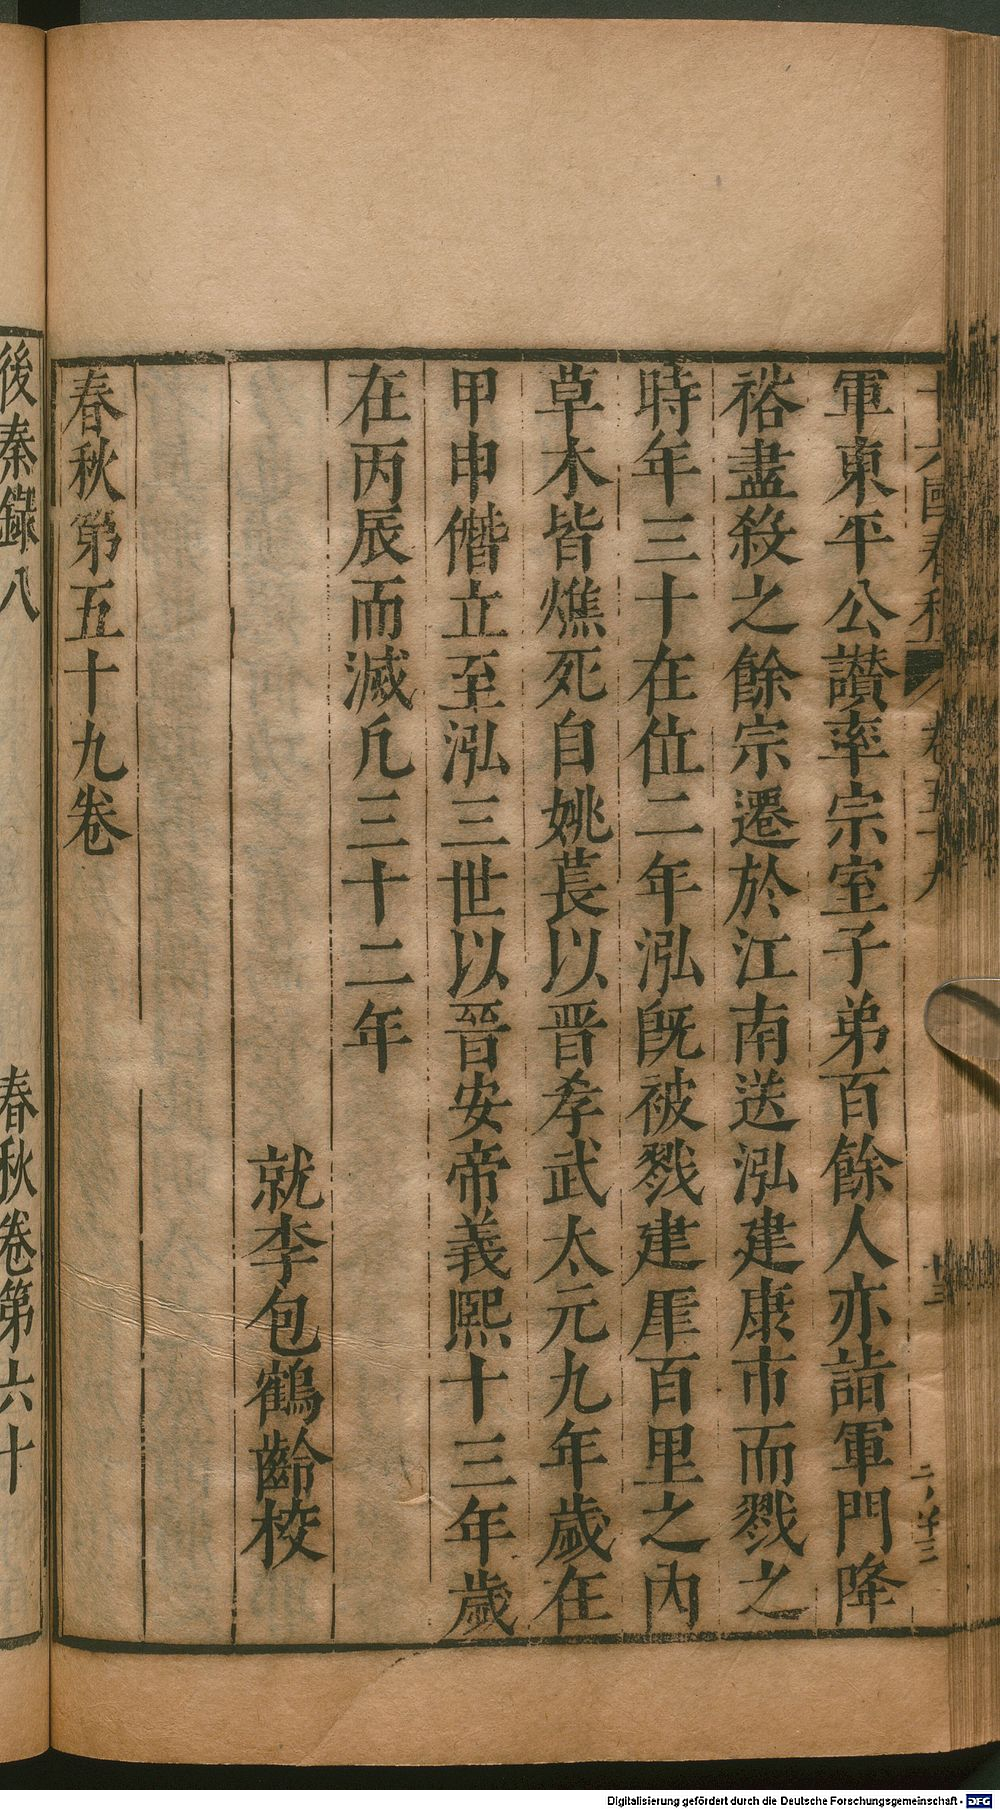 十六國春秋
卷五十九
軍東平公讃率宗室子弟百餘人亦詣軍門降
裕盡殺之餘宗遷於江南送泓建康市而戮之
時年三十在位二年泓旣被戮建厓百里之內
草木皆燋死自姚萇以晋孝武太元九年歲在
甲申僭立至泓三世以晉安帝義熈十三年歲
在丙辰而滅凢三十二年
就李包鶴齡校
春秋第五十九卷
後秦錄八
春秋卷第六十
Digitalisierung gefördert durch die Deutsche Forschungsgemeinschaft - DFG